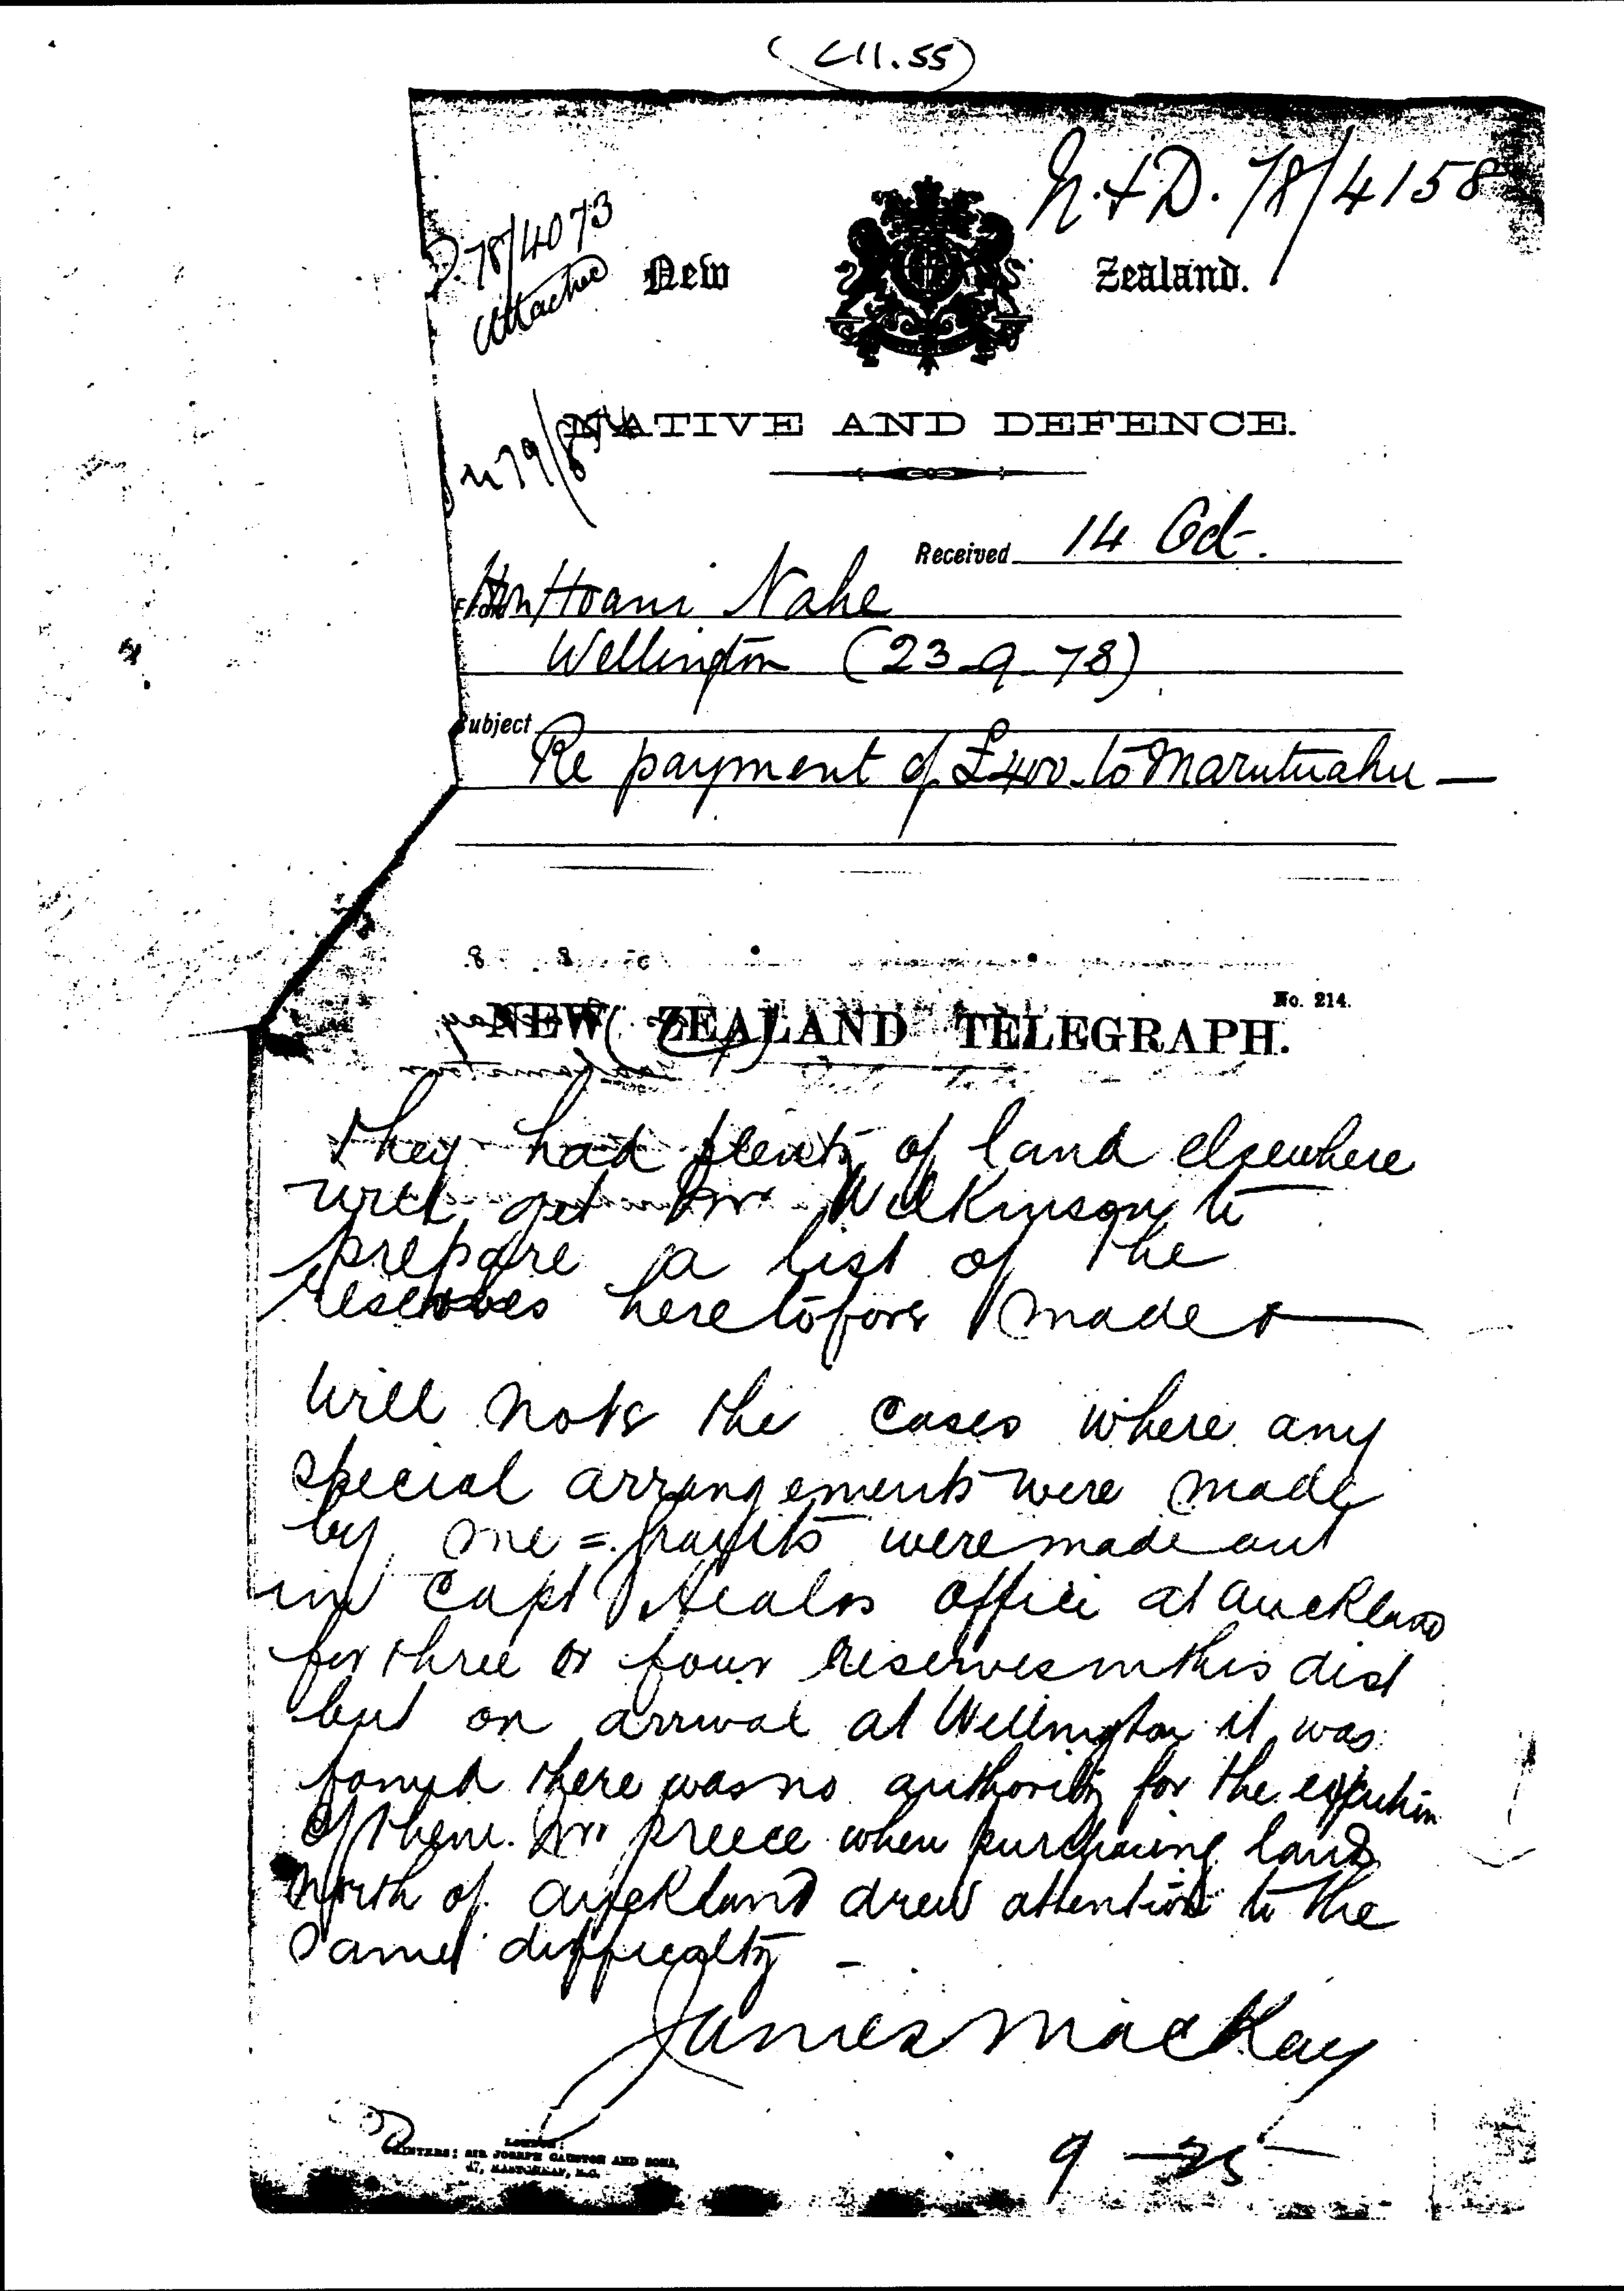 (C11.55)
N.+D. 78/4158
D.78/4073
Attached
New Zealand.
NATIVE AND DEFENCE.
Received 14 Oct.
From Hon Hoani Nahe
Wellington (23-9-78)
Subject
Re payment of £400 to Marutuahu —
No. 214.
NEW ZEALAND TELEGRAPH.
they had plenty of land elsewhere
will get Mr Wilkinson to
prepare a list of the
reserves heretofore made +
will note the cases where any
special arrangements were made
by me =. were made out
in Capt Heales office at Auckland
for three or four reserves in this dist
but on arrival at Wellington it was
found there was no authority for the execution
of them. Mr Preece when purchasing land
North of Auckland drew attention to the
same difficulty —
James Mackay
LONDON:
PRINTERS: SIR JOSEPH CAUSTON AND SONS,
47, EASTCHEAP, E.C.
9 — 25